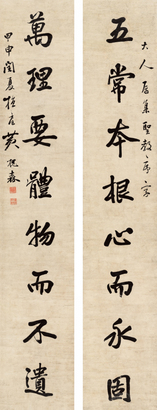 大人屬集聖教序字
五常本根心而永固
萬理要體物而不遺
甲申閏夏